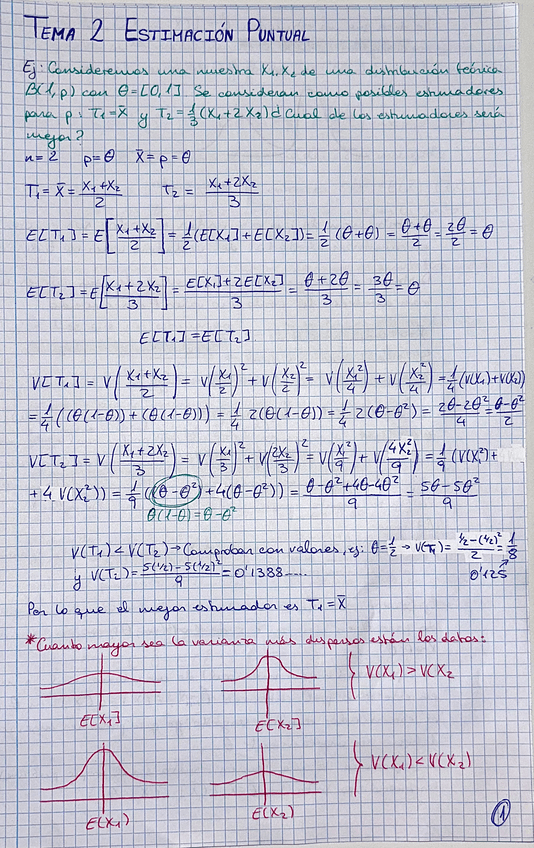 TEMA 2 ESTIMACIÓN PUNTUAL
Ej: Consideremos una muestra X₁, X₂ de una distribución teórica
B(1,p) con θ=[0,1] Se consideran como posibles estimadores
para p: T₁=X̄ y T₂=1/3(X₁+2X₂) ¿Cual de los estimadores será
mejor?
n=2 p=θ X̄=p=θ
T₁=X̄=(X₁+X₂)/2 T₂=(X₁+2X₂)/3
E[T₁]=E[(X₁+X₂)/2]=1/2(E[X₁]+E[X₂])=1/2(θ+θ)=(θ+θ)/2=2θ/2=θ
E[T₂]=E[(X₁+2X₂)/3]=(E[X₁]+2E[X₂])/3=(θ+2θ)/3=3θ/3=θ
E[T₁]=E[T₂]
V[T₁]=V((X₁+X₂)/2)=V(X₁/2)²+V(X₂/2)²=V(X₁²/4)+V(X₂²/4)=1/4(V(X₁)+V(X₂))
=1/4((θ(1-θ))+(θ(1-θ)))=1/4 2(θ(1-θ))=1/4 2(θ-θ²)=(2θ-2θ²)/4=(θ-θ²)/2
V[T₂]=V((X₁+2X₂)/3)=V(X₁/3)²+V(2X₂/3)²=V(X₁²/9)+V(4X₂²/9)=1/9(V(X₁²)+
+4V(X₂²))=1/9((θ-θ²)+4(θ-θ²))=(θ-θ²+4θ-4θ²)/9=(5θ-5θ²)/9
θ(1-θ)=θ-θ²
V(T₁)<V(T₂)→Comprobar con valores, ej: θ=1/2→V(T₁)=(1/2-(1/2)²)/2=1/8
y V(T₂)=(5(1/2)-5(1/2)²)/9=0'1388.... 0'125
Por lo que el mejor estimador es T₁=X̄
*Cuanto mayor sea la varianza más dispersos están los datos:
V(X₁)>V(X₂
E[X₁] E[X₂]
V(X₁)<V(X₂)
E(X₁) E(X₂)
1